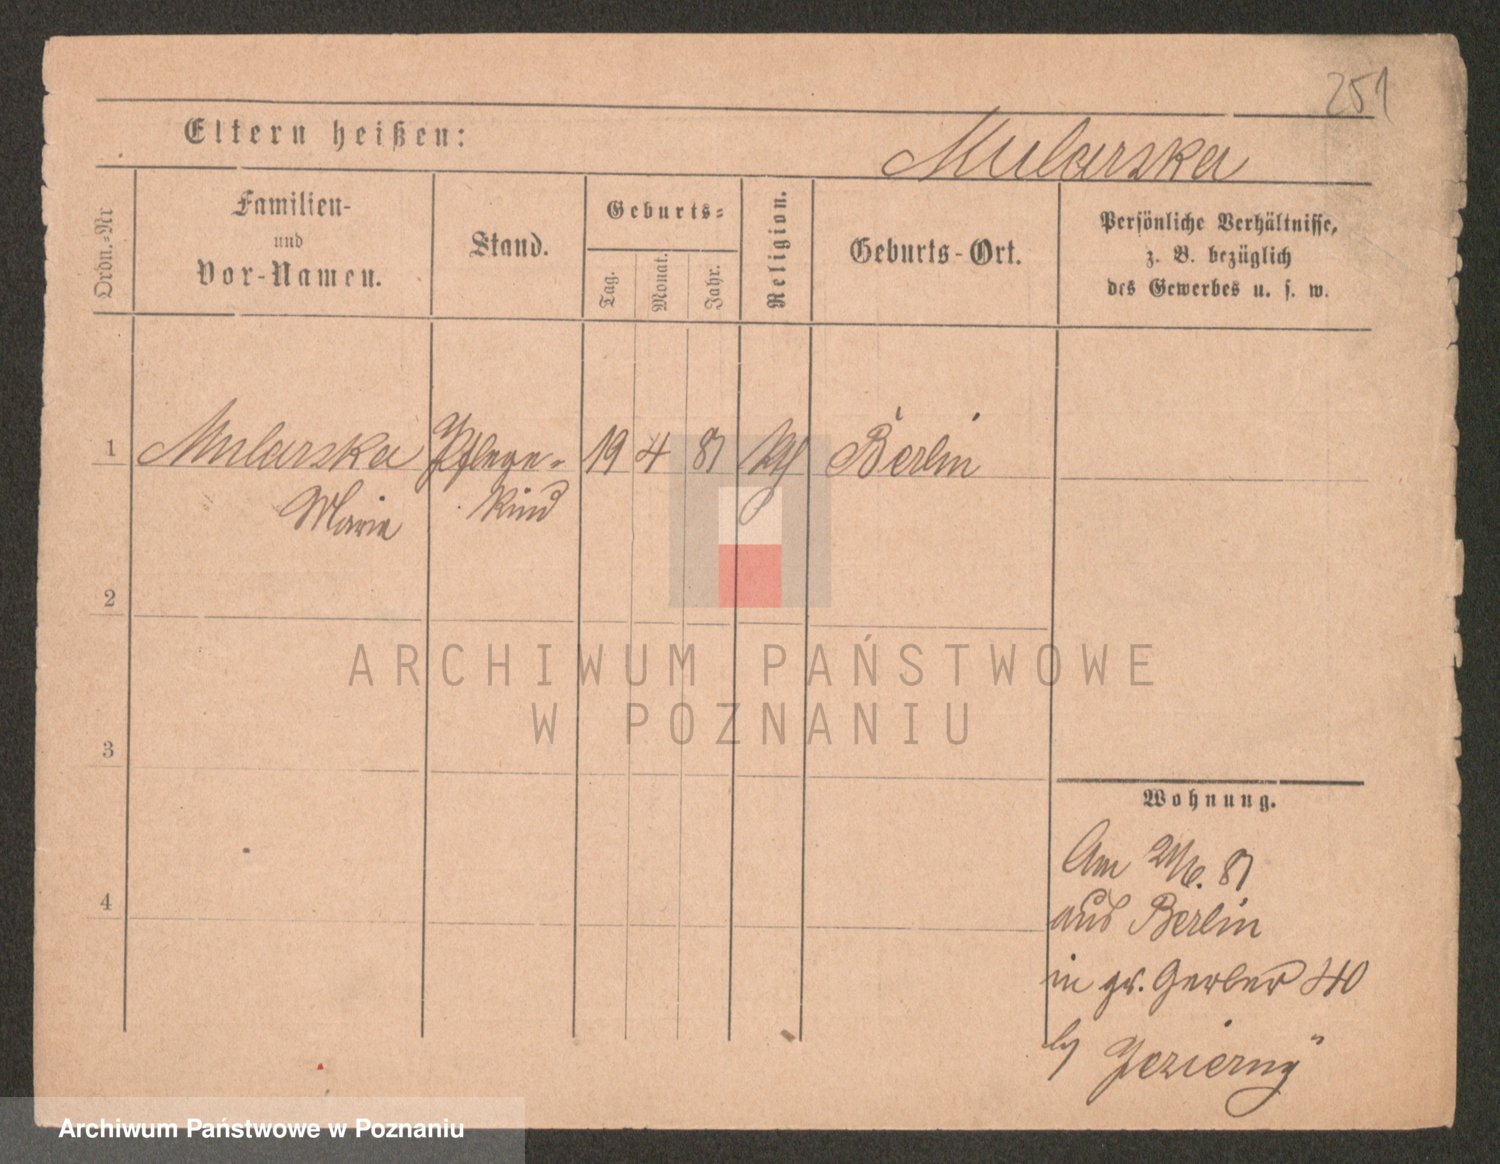 251
Eltern heißen:
Mularska
Ordn.-Nr
Familien-
und
Vor-Namen.
Stand.
Geburts-
Tag.
Monat.
Jahr.
Religion.
Geburts-Ort.
Persönliche Verhältnisse,
z. B. bezüglich
des Gewerbes u. s. w.
1 Mularska Pflege- 19 4 81 Berlin
Marie kind
2
3
4
Wohnung.
Am 81
aus Berlin
in gr. Gerber 40
by Jezierny
ARCHIWUM PAŃSTWOWE
W POZNANIU
Archiwum Państwowe w Poznaniu